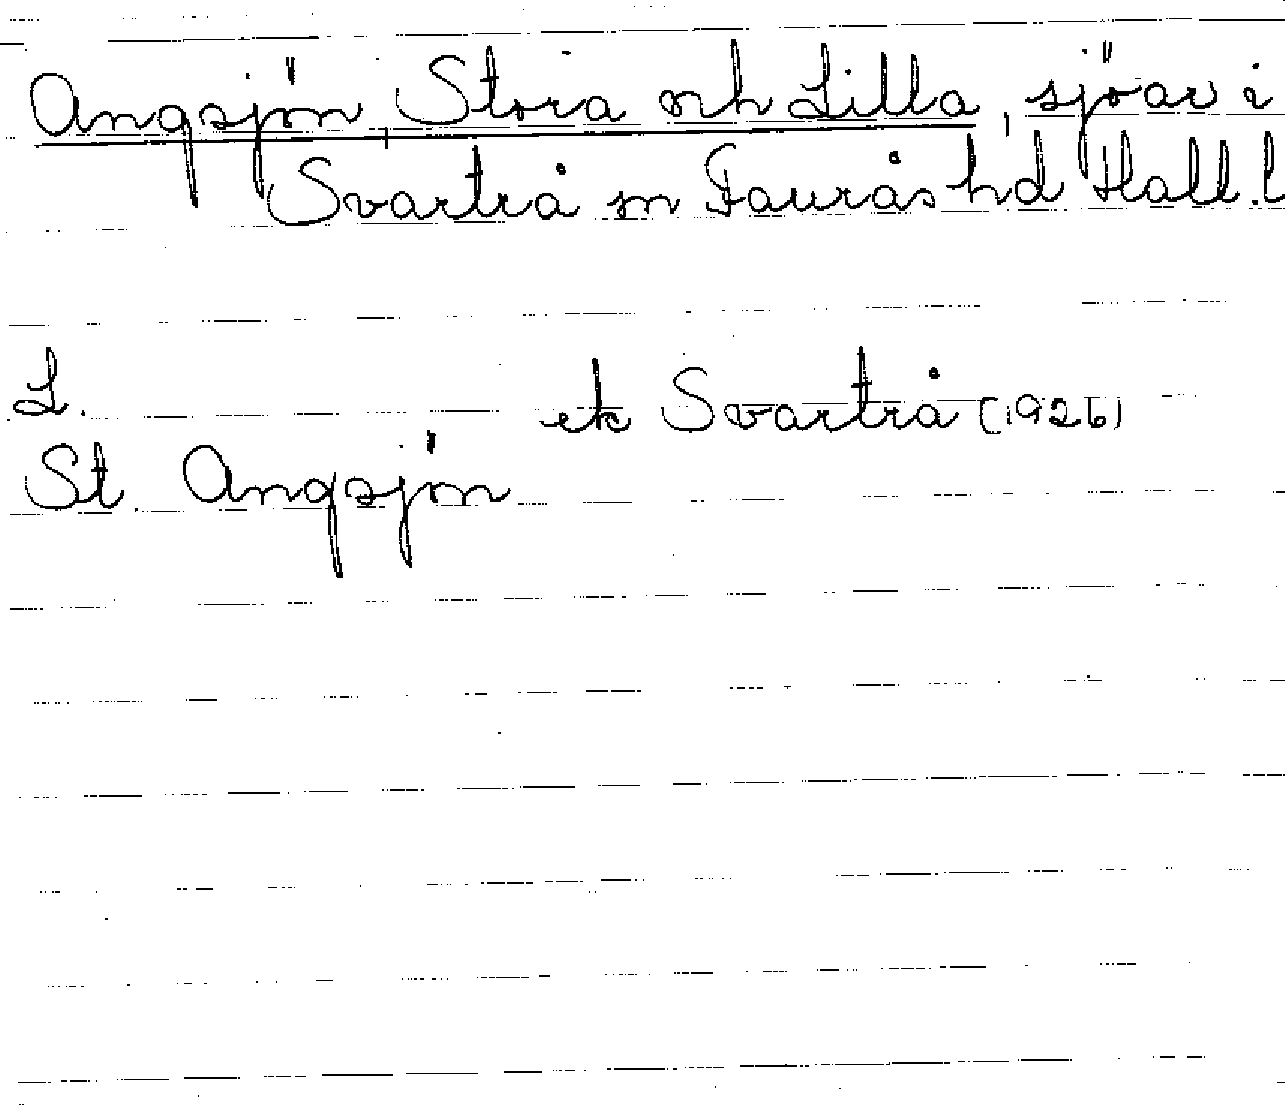 Angsjön, Stora och Lilla, sjöar i
Svartrå sn Faurås hd Hall. l
L. ek Svartrå (1926)
St. Angsjön